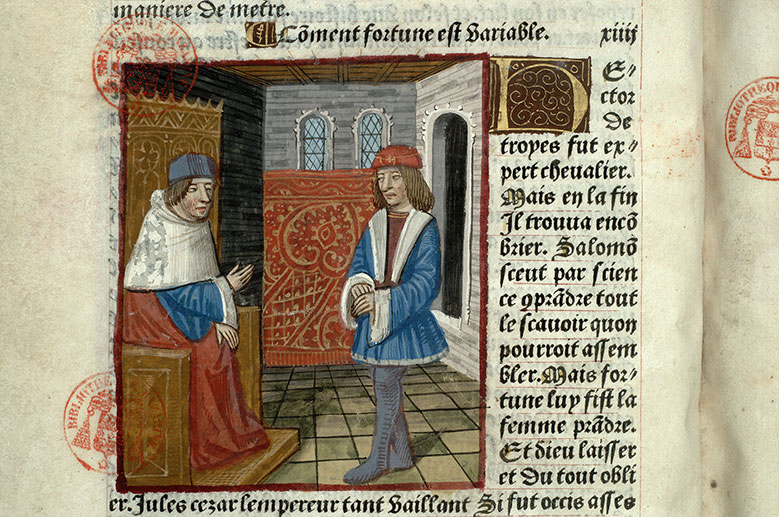 maniere de metre.
Cõment fortune est variable. xiiii
Hector
de
troyes fut ex/
pert chevalier.
Mais en la fin
Il trouua encõ
brier. Salomõ
sceut par scien
ce ꝯprãdre tout
le scauoir quon
pourroit assem
bler. Mais for/
tune luy fist la
femme prãdre.
Et dieu laisser
et du tout obli
er. Jules cezar lempereur tant vaillant Si fut occis asses
BIBLIOTHEQU
BIBLIOTHEQUE
BIBLIOTHE